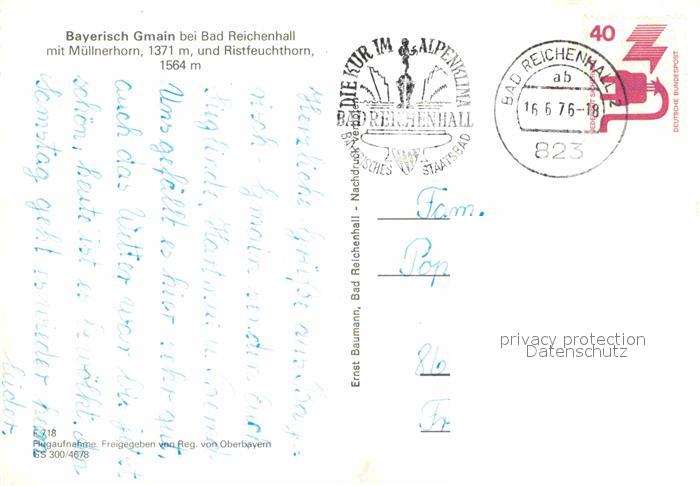 Bayerisch Gmain bei Bad Reichenhall
mit Müllnerhorn, 1371 m, und Ristfeuchthorn,
1564 m
DIE KUR IM ALPENKLIMA
BAD REICHENHALL
BAYRISCHES STAATSBAD
BAD REICHENHALL 2
ab
16.6.76-18
823
40
DEUTSCHE BUNDESPOST
Herzliche Grüße aus Bayr-
isch-Gmain sendet Euch
Sieglinde, Hartmut
Uns gefällt es hier sehr gut,
auch das Wetter war bis jetzt
schön, heute ist es bewölkt. Am
Samstag geht es wieder heim
leider.
Fam.
Pop
Fr
Ernst Baumann, Bad Reichenhall - Nachdruck verboten
privacy protection
Datenschutz
F 718
Flugaufnahme. Freigegeben von Reg. von Oberbayern
GS 300/4678